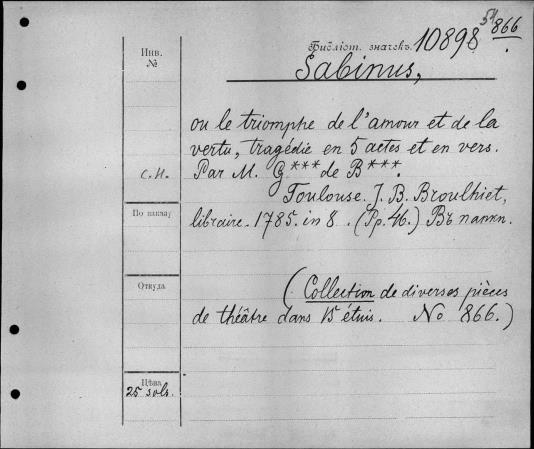 51
866
Библіот. значекъ. 10898
Инв.
№
Sabinus,
ou le triomphe de l'amour et de la
vertu, tragédie en 5 actes et en vers.
С.Н. Par M. G*** de B***.
Toulouse. J. B. Broulhiet,
По накладу
libraire. 1785. in 8. (Pp. 46.) Въ папкѣ.
Откуда
(Collection de diverses pièces
de théâtre dans 15 étuis. No 866.)
Цѣна
25 sols.